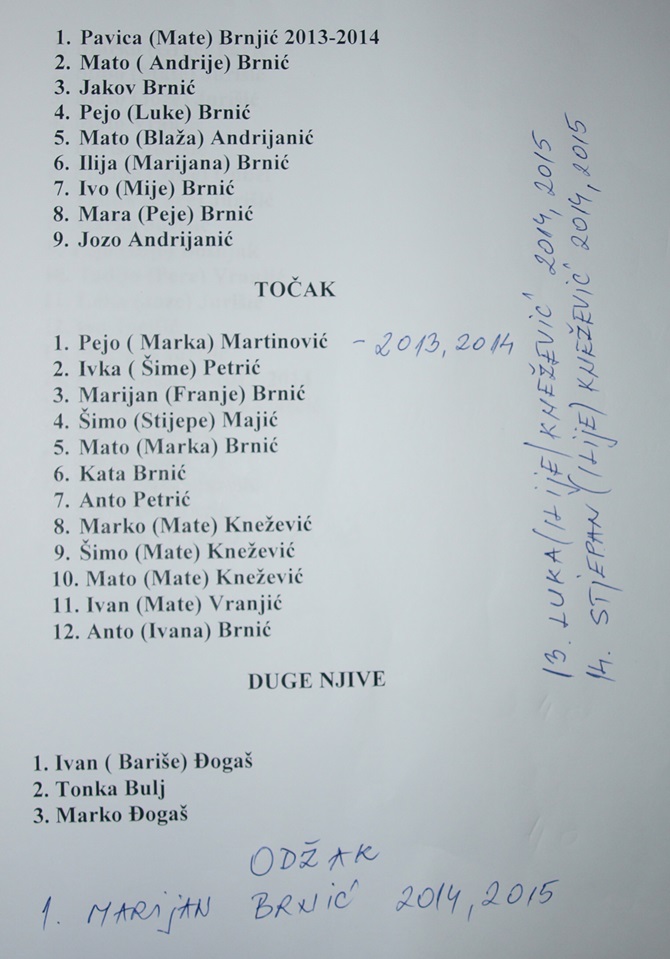 1. Pavica (Mate) Brnjić 2013-2014
2. Mato ( Andrije) Brnić
3. Jakov Brnić
4. Pejo (Luke) Brnić
5. Mato (Blaža) Andrijanić
6. Ilija (Marijana) Brnić
7. Ivo (Mije) Brnić
8. Mara (Peje) Brnić
9. Jozo Andrijanić
TOČAK
1. Pejo ( Marka) Martinović - 2013, 2014
2. Ivka ( Šime) Petrić
3. Marijan (Franje) Brnić
4. Šimo (Stijepe) Majić
5. Mato (Marka) Brnić
6. Kata Brnić
7. Anto Petrić
8. Marko (Mate) Knežević
9. Šimo (Mate) Knežević
10. Mato (Mate) Knežević
11. Ivan (Mate) Vranjić
12. Anto (Ivana) Brnić
13. LUKA (ILIJE) KNEŽEVIĆ 2014, 2015
14. STJEPAN (ILIJE) KNEŽEVIĆ 2014, 2015
DUGE NJIVE
1. Ivan ( Bariše) Đogaš
2. Tonka Bulj
3. Marko Đogaš
ODŽAK
1. MARIJAN BRNIĆ 2014, 2015